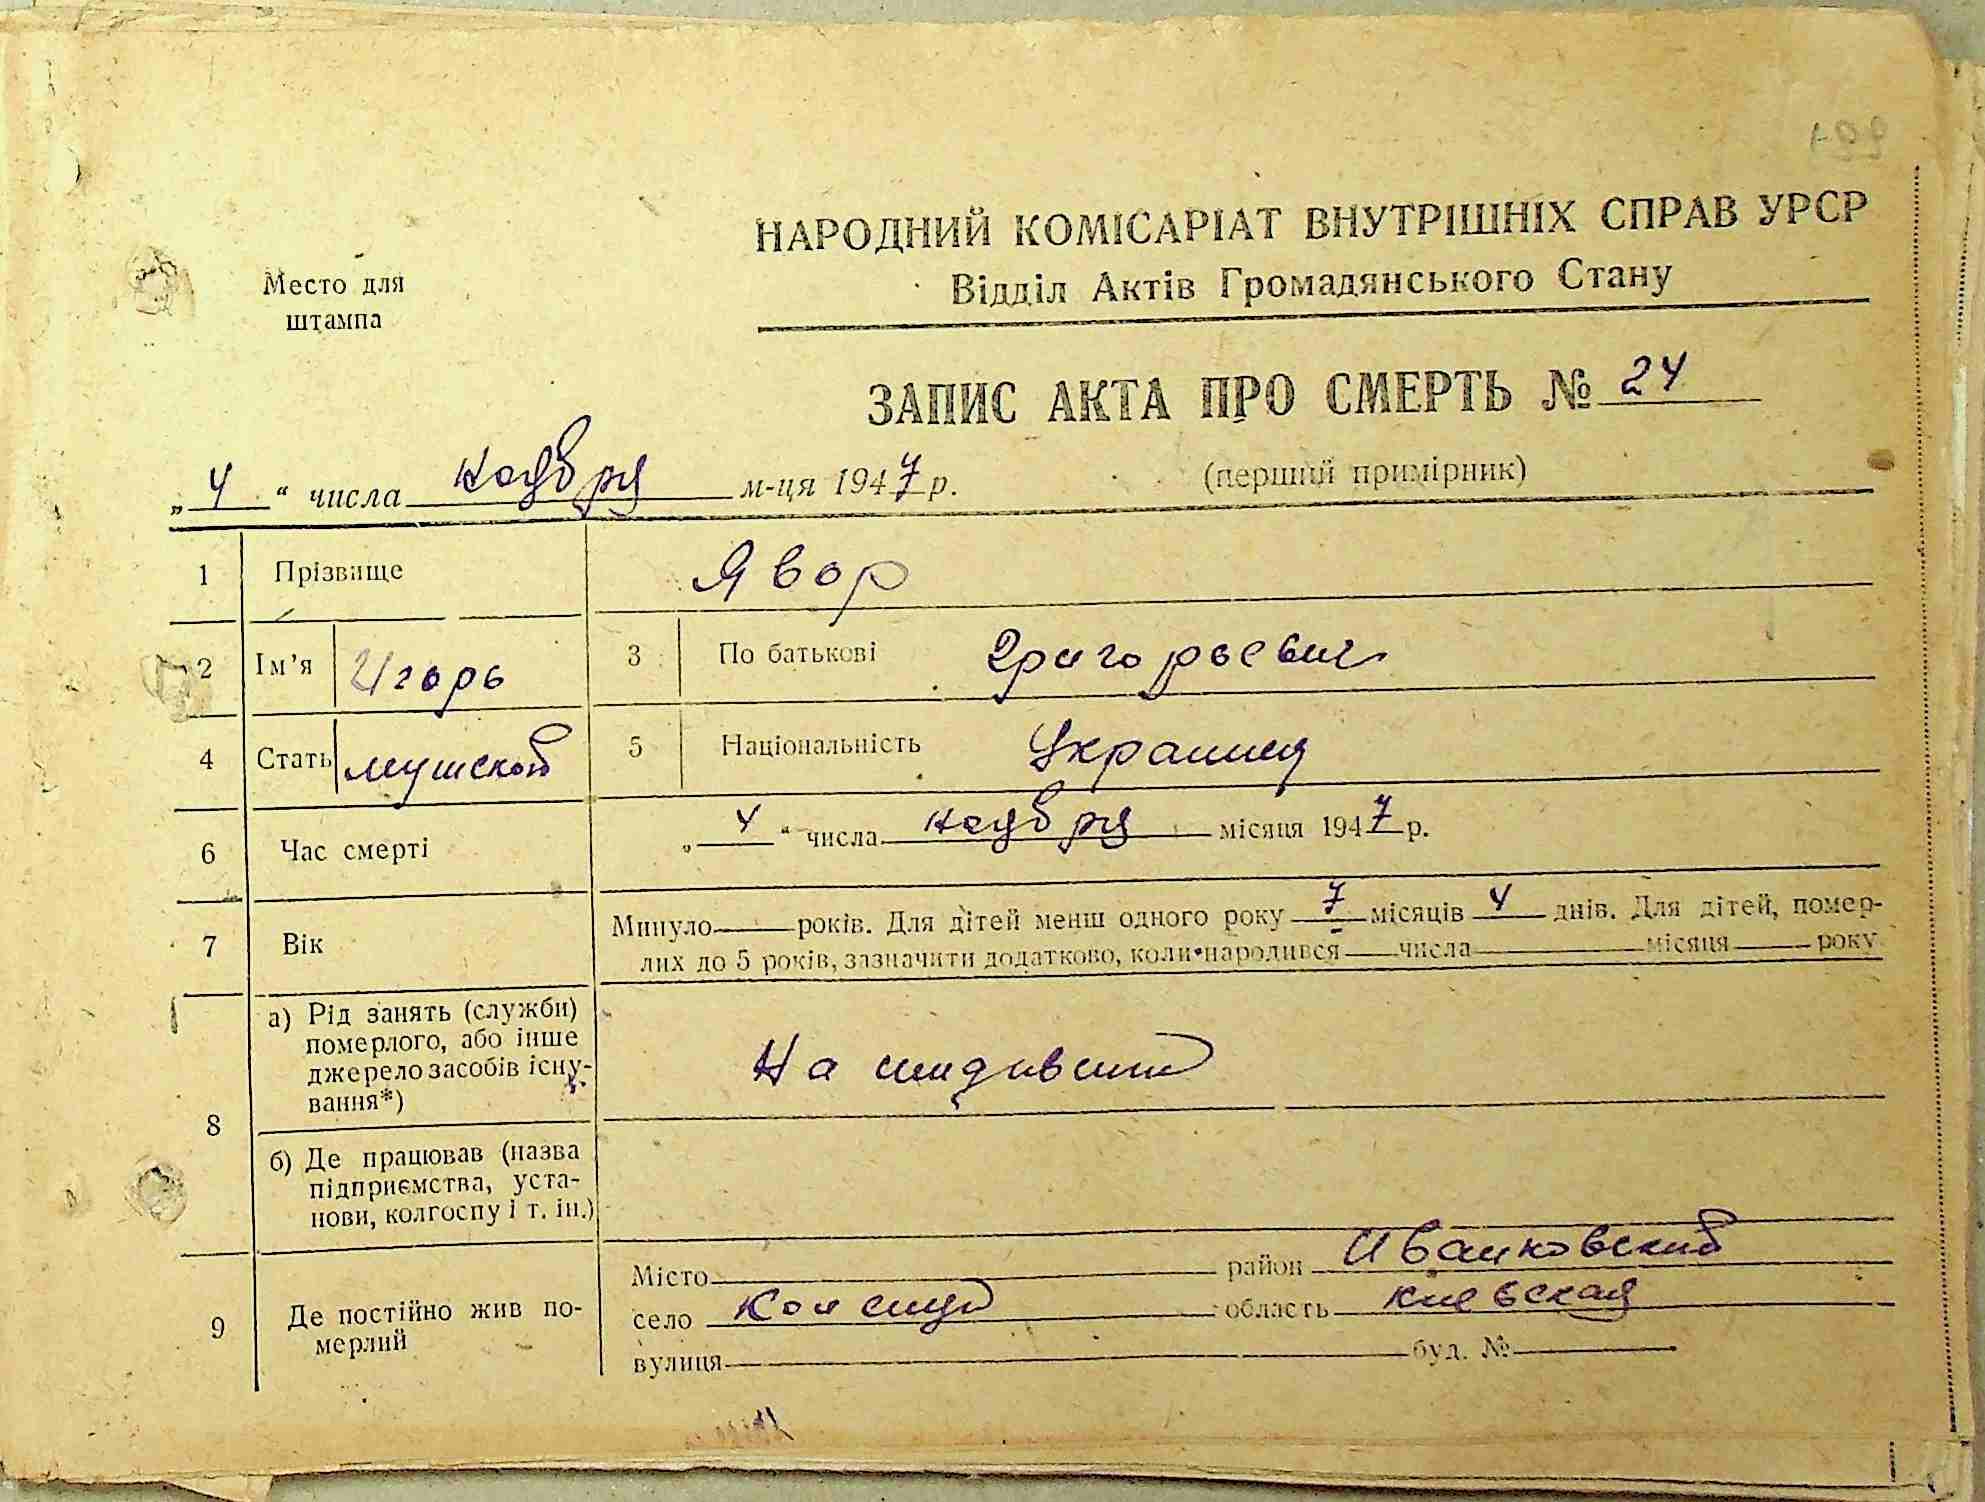 НАРОДНИЙ КОМІСАРІАТ ВНУТРІШНІХ СПРАВ УРСР
Відділ Актів Громадянського Стану
Место для
штампа
ЗАПИС АКТА ПРО СМЕРТЬ № 24
„4“ числа ноября м-ця 1947 р.
(перший примірник)
1 Прізвище Явор
2 Ім’я Игорь 3 По батькові Григорьевич
4 Стать мушской 5 Національність
6 Час смерті „4“ числа ноября місяця 1947 р.
7 Вік Минуло — років. Для дітей менш одного року 7 місяців 4 днів. Для дітей, помер-
лих до 5 років, зазначити додатково, коли народився — числа — місяця — року
8 а) Рід занять (служби)
померлого, або інше
джерело засобів існу-
вання*)
На
б) Де працював (назва
підприємства, уста-
нови, колгоспу і т. ін.)
9 Де постійно жив по-
мерлий
Місто район Иванковский
село область Киевская
вулиця буд. №